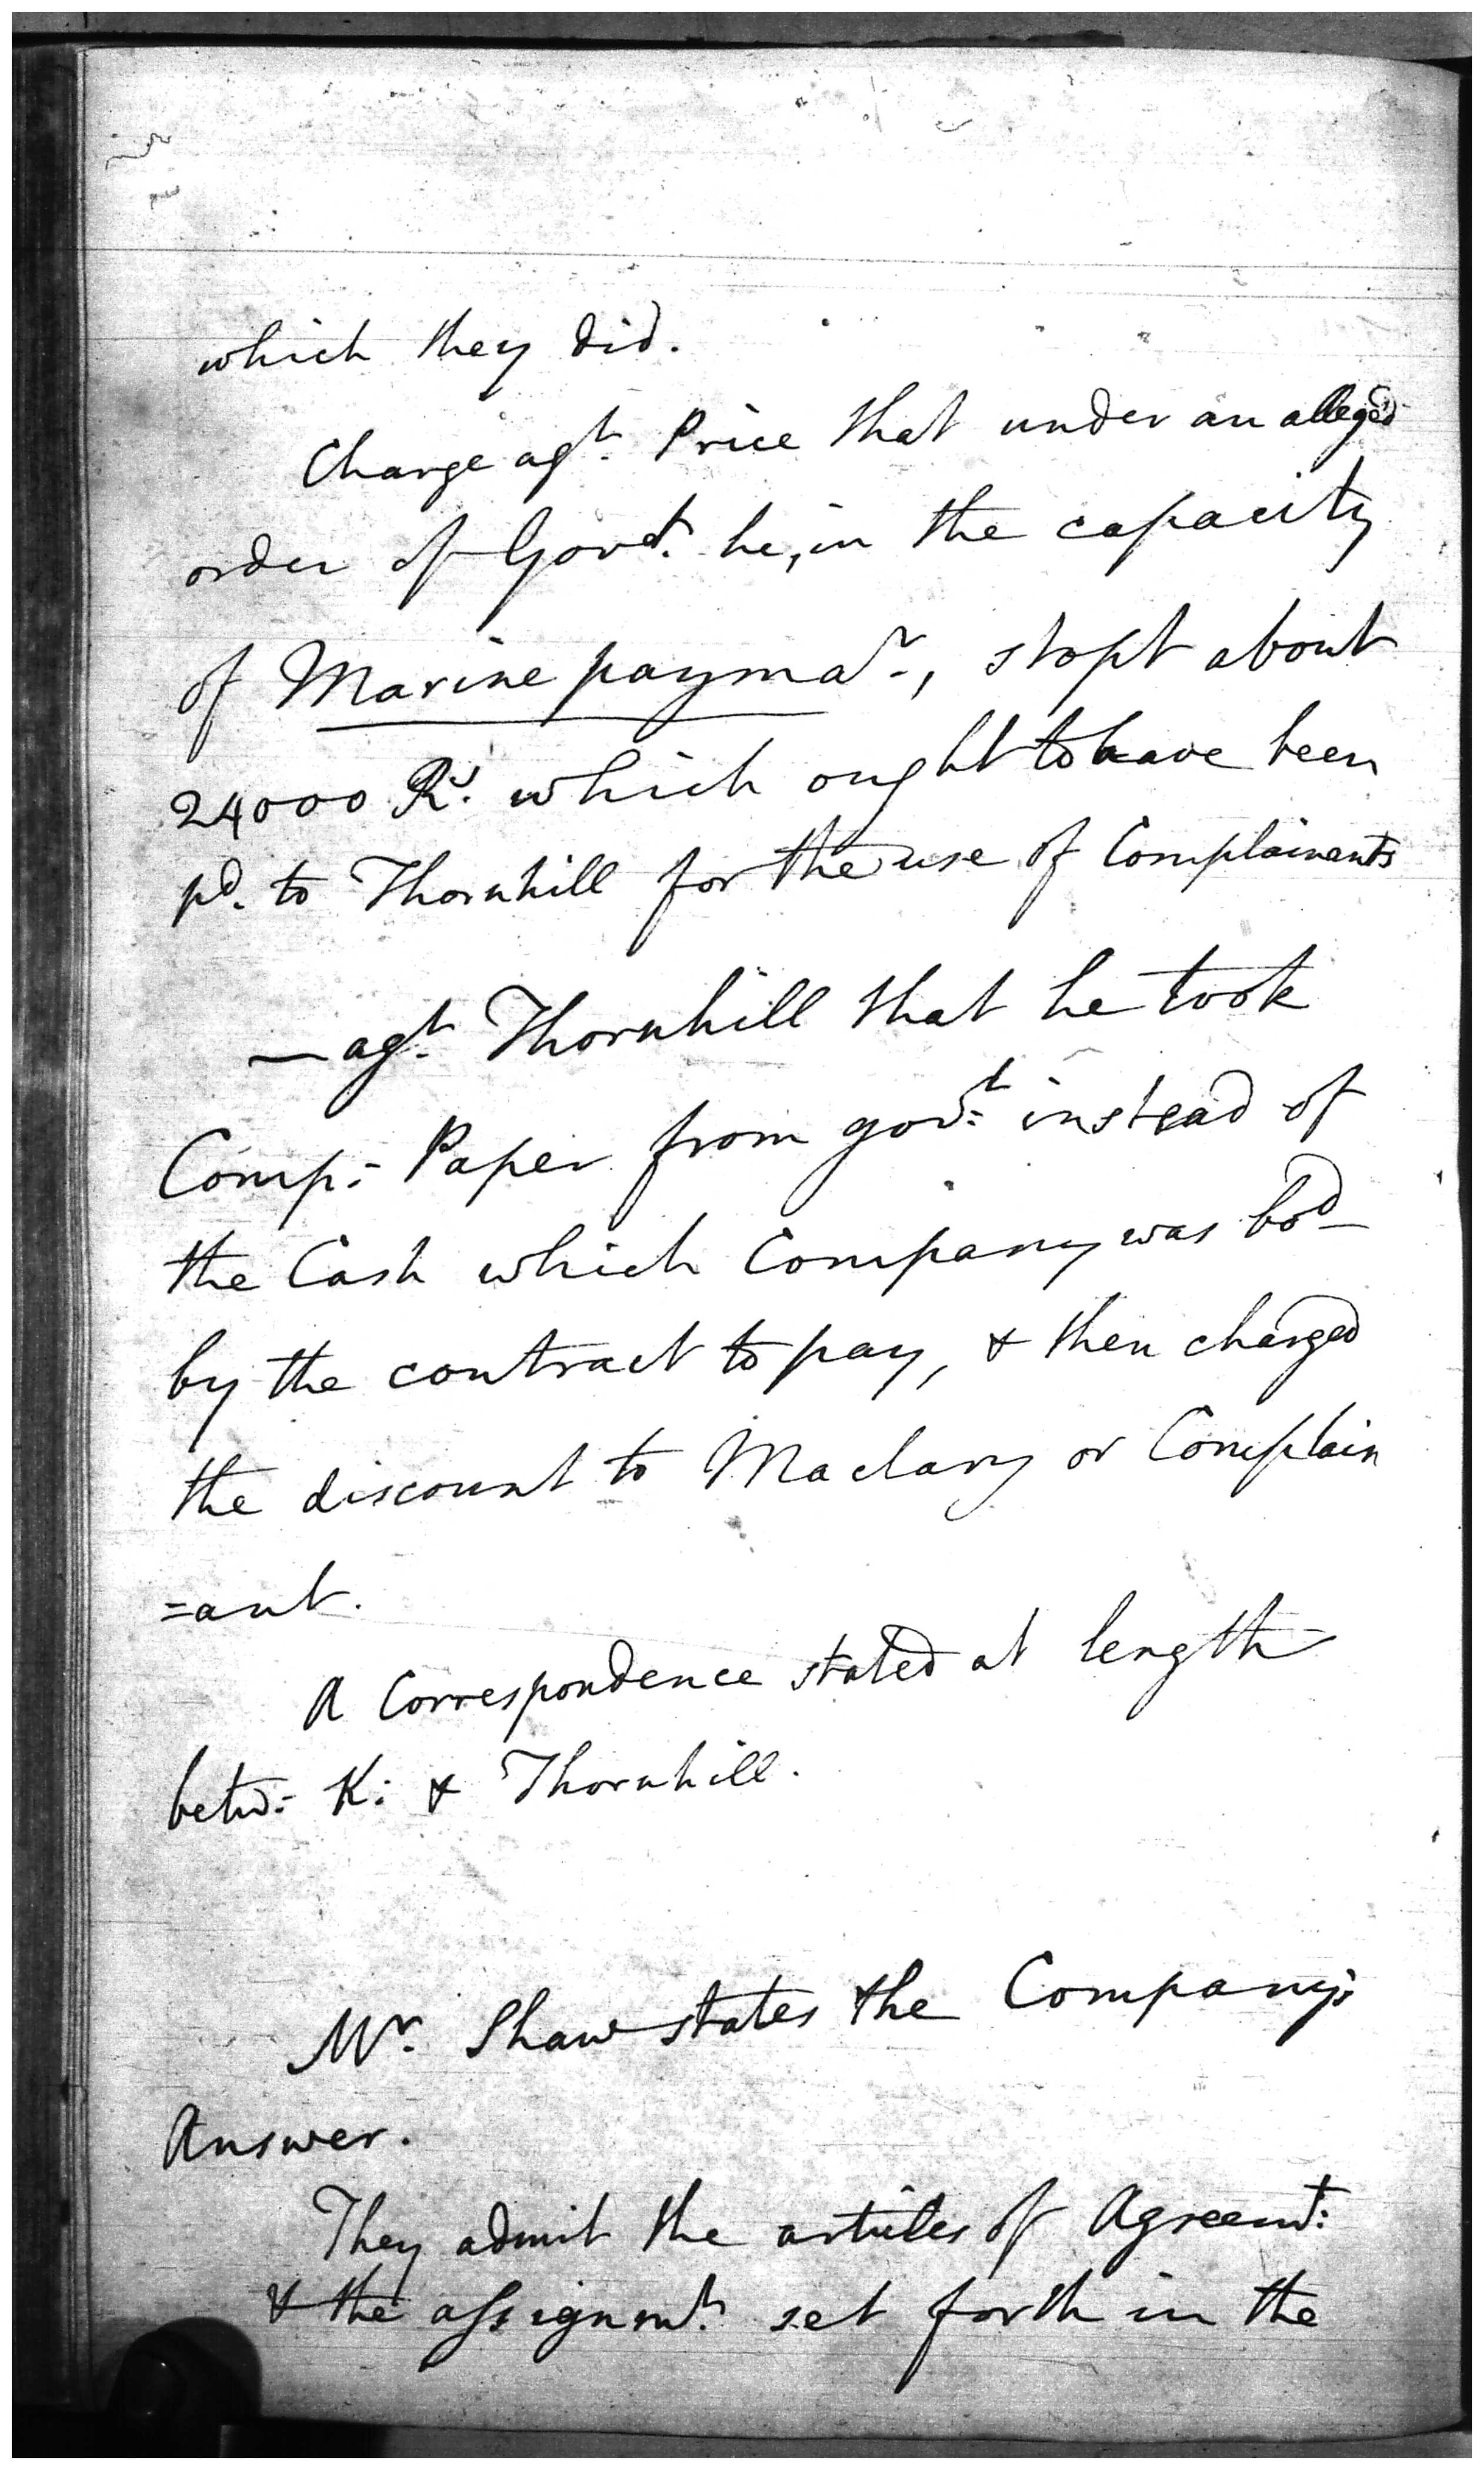 which they did.
Charge agt. Price that under an alleged
order of Govt. he, in the capacity
of Marine paymar., stopt about
24000 Rs. which ought to have been
pd. to Thornhill for the use of Complainants
— agt. Thornhill that he took
Comp: Paper from govt: instead of
the Cash which Company was bod
by the contract to pay, & then charged
the discount to Maclary or Complain
=ant.
A Correspondence stated at length
betw: K: & Thornhill.
Mr. Shaw states the Company's
Answer.
They admit the articles of Agreemt:
& the assignmt. set forth in the